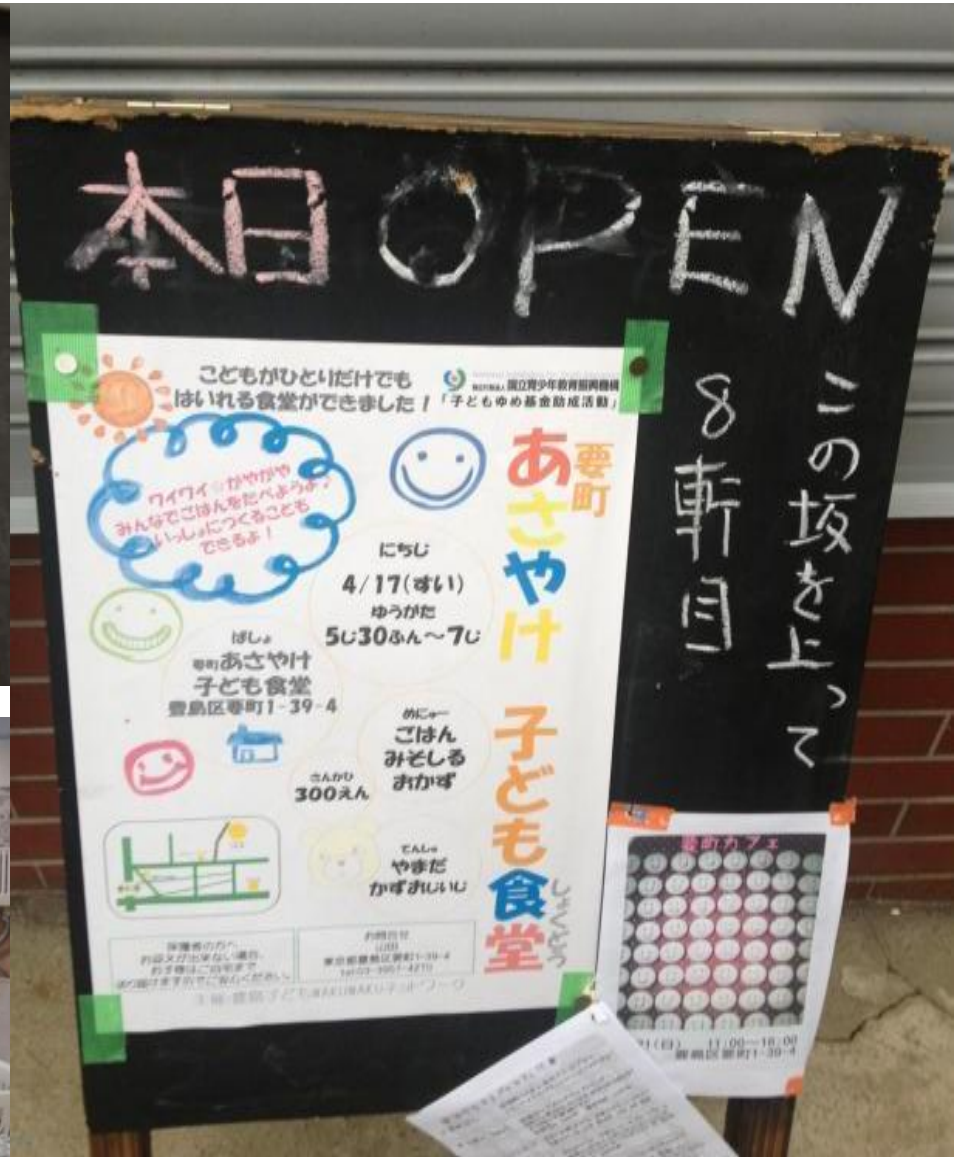 本日OPEN
この坂を上って
8軒目
こどもがひとりだけでも
はいれる食堂ができました!
独立行政法人 国立青少年教育振興機構
「子どもゆめ基金助成活動」
要町
あさやけ 子ども食堂
しょくどう
ワイワイ☆がやがや
みんなでごはんをたべようよ♪
いっしょにつくることも
できるよ!
にちじ
4/17(すい)
ゆうがた
5じ30ふん〜7じ
ばしょ
要町あさやけ
子ども食堂
豊島区要町1-39-4
めにゅー
ごはん
みそしる
おかず
さんかひ
300えん
てんしゅ
やまだ
かずおじいじ
保護者の方へ
お迎えが出来ない場合、
お子様はご自宅まで
送り届けますのでご安心ください。
お問合せ
山田
東京都豊島区要町1-39-4
主催:豊島子どもWAKUWAKUネットワーク
要町カフェ
21(日) 11:00〜16:00
豊島区要町1-39-4